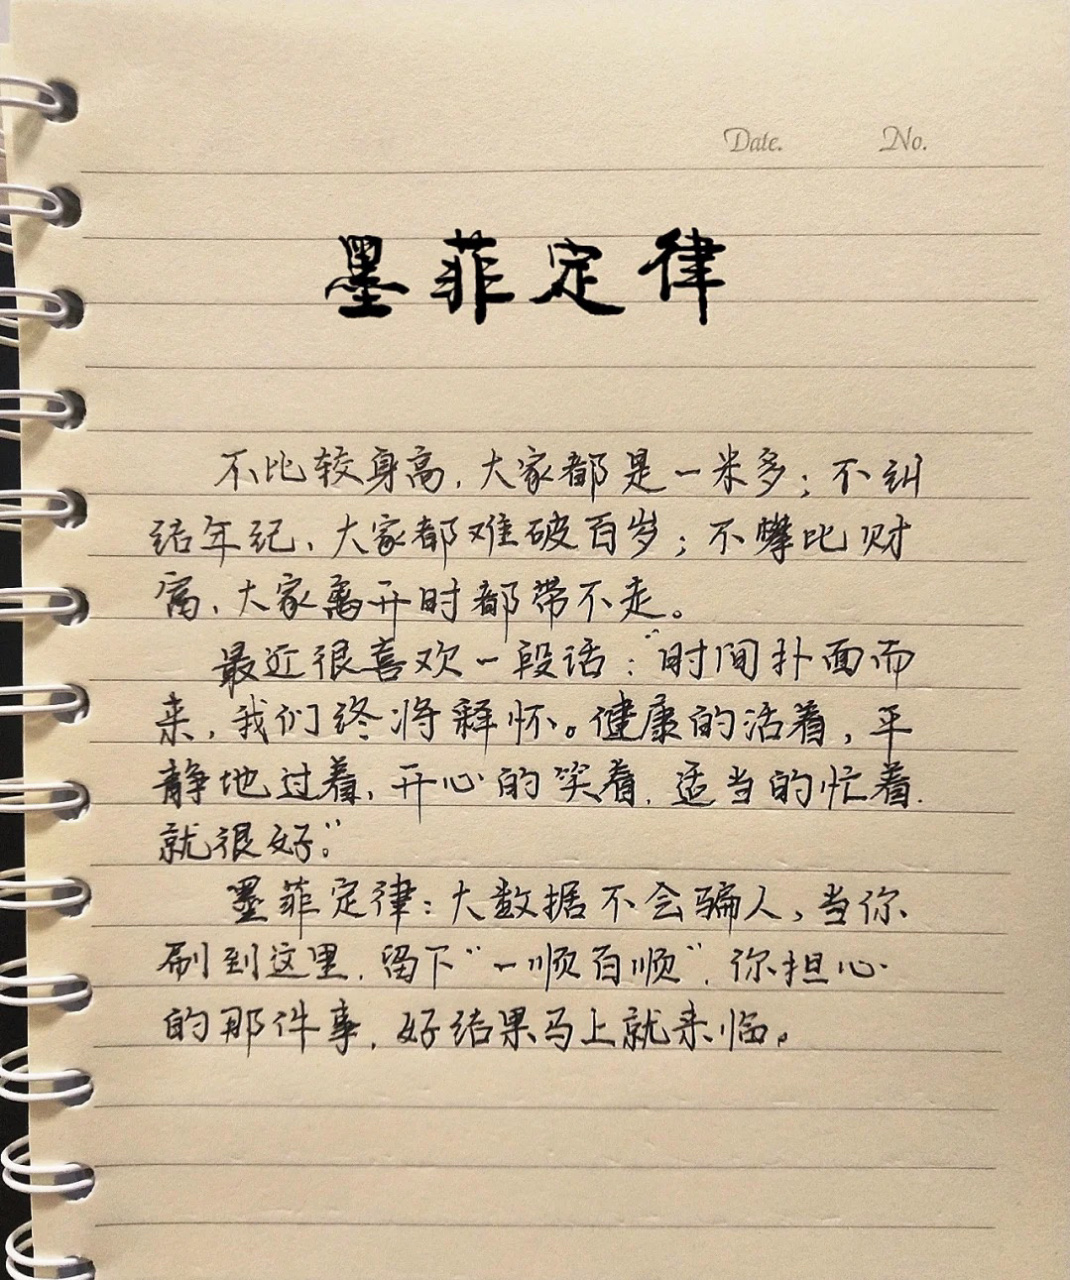 Date. No.
墨菲定律
不比较身高,大家都是一米多;不纠
结年纪、大家都难破百岁;不攀比财
富,大家离开时都带不走。
最近很喜欢一段话:"时间扑面而
来,我们终将释怀。健康的活着,平
静地过着,开心的笑着,适当的忙着.
就很好。"
墨菲定律:大数据不会骗人,当你
刷到这里,留下"一顺百顺",你担心
的那件事,好结果马上就来临。